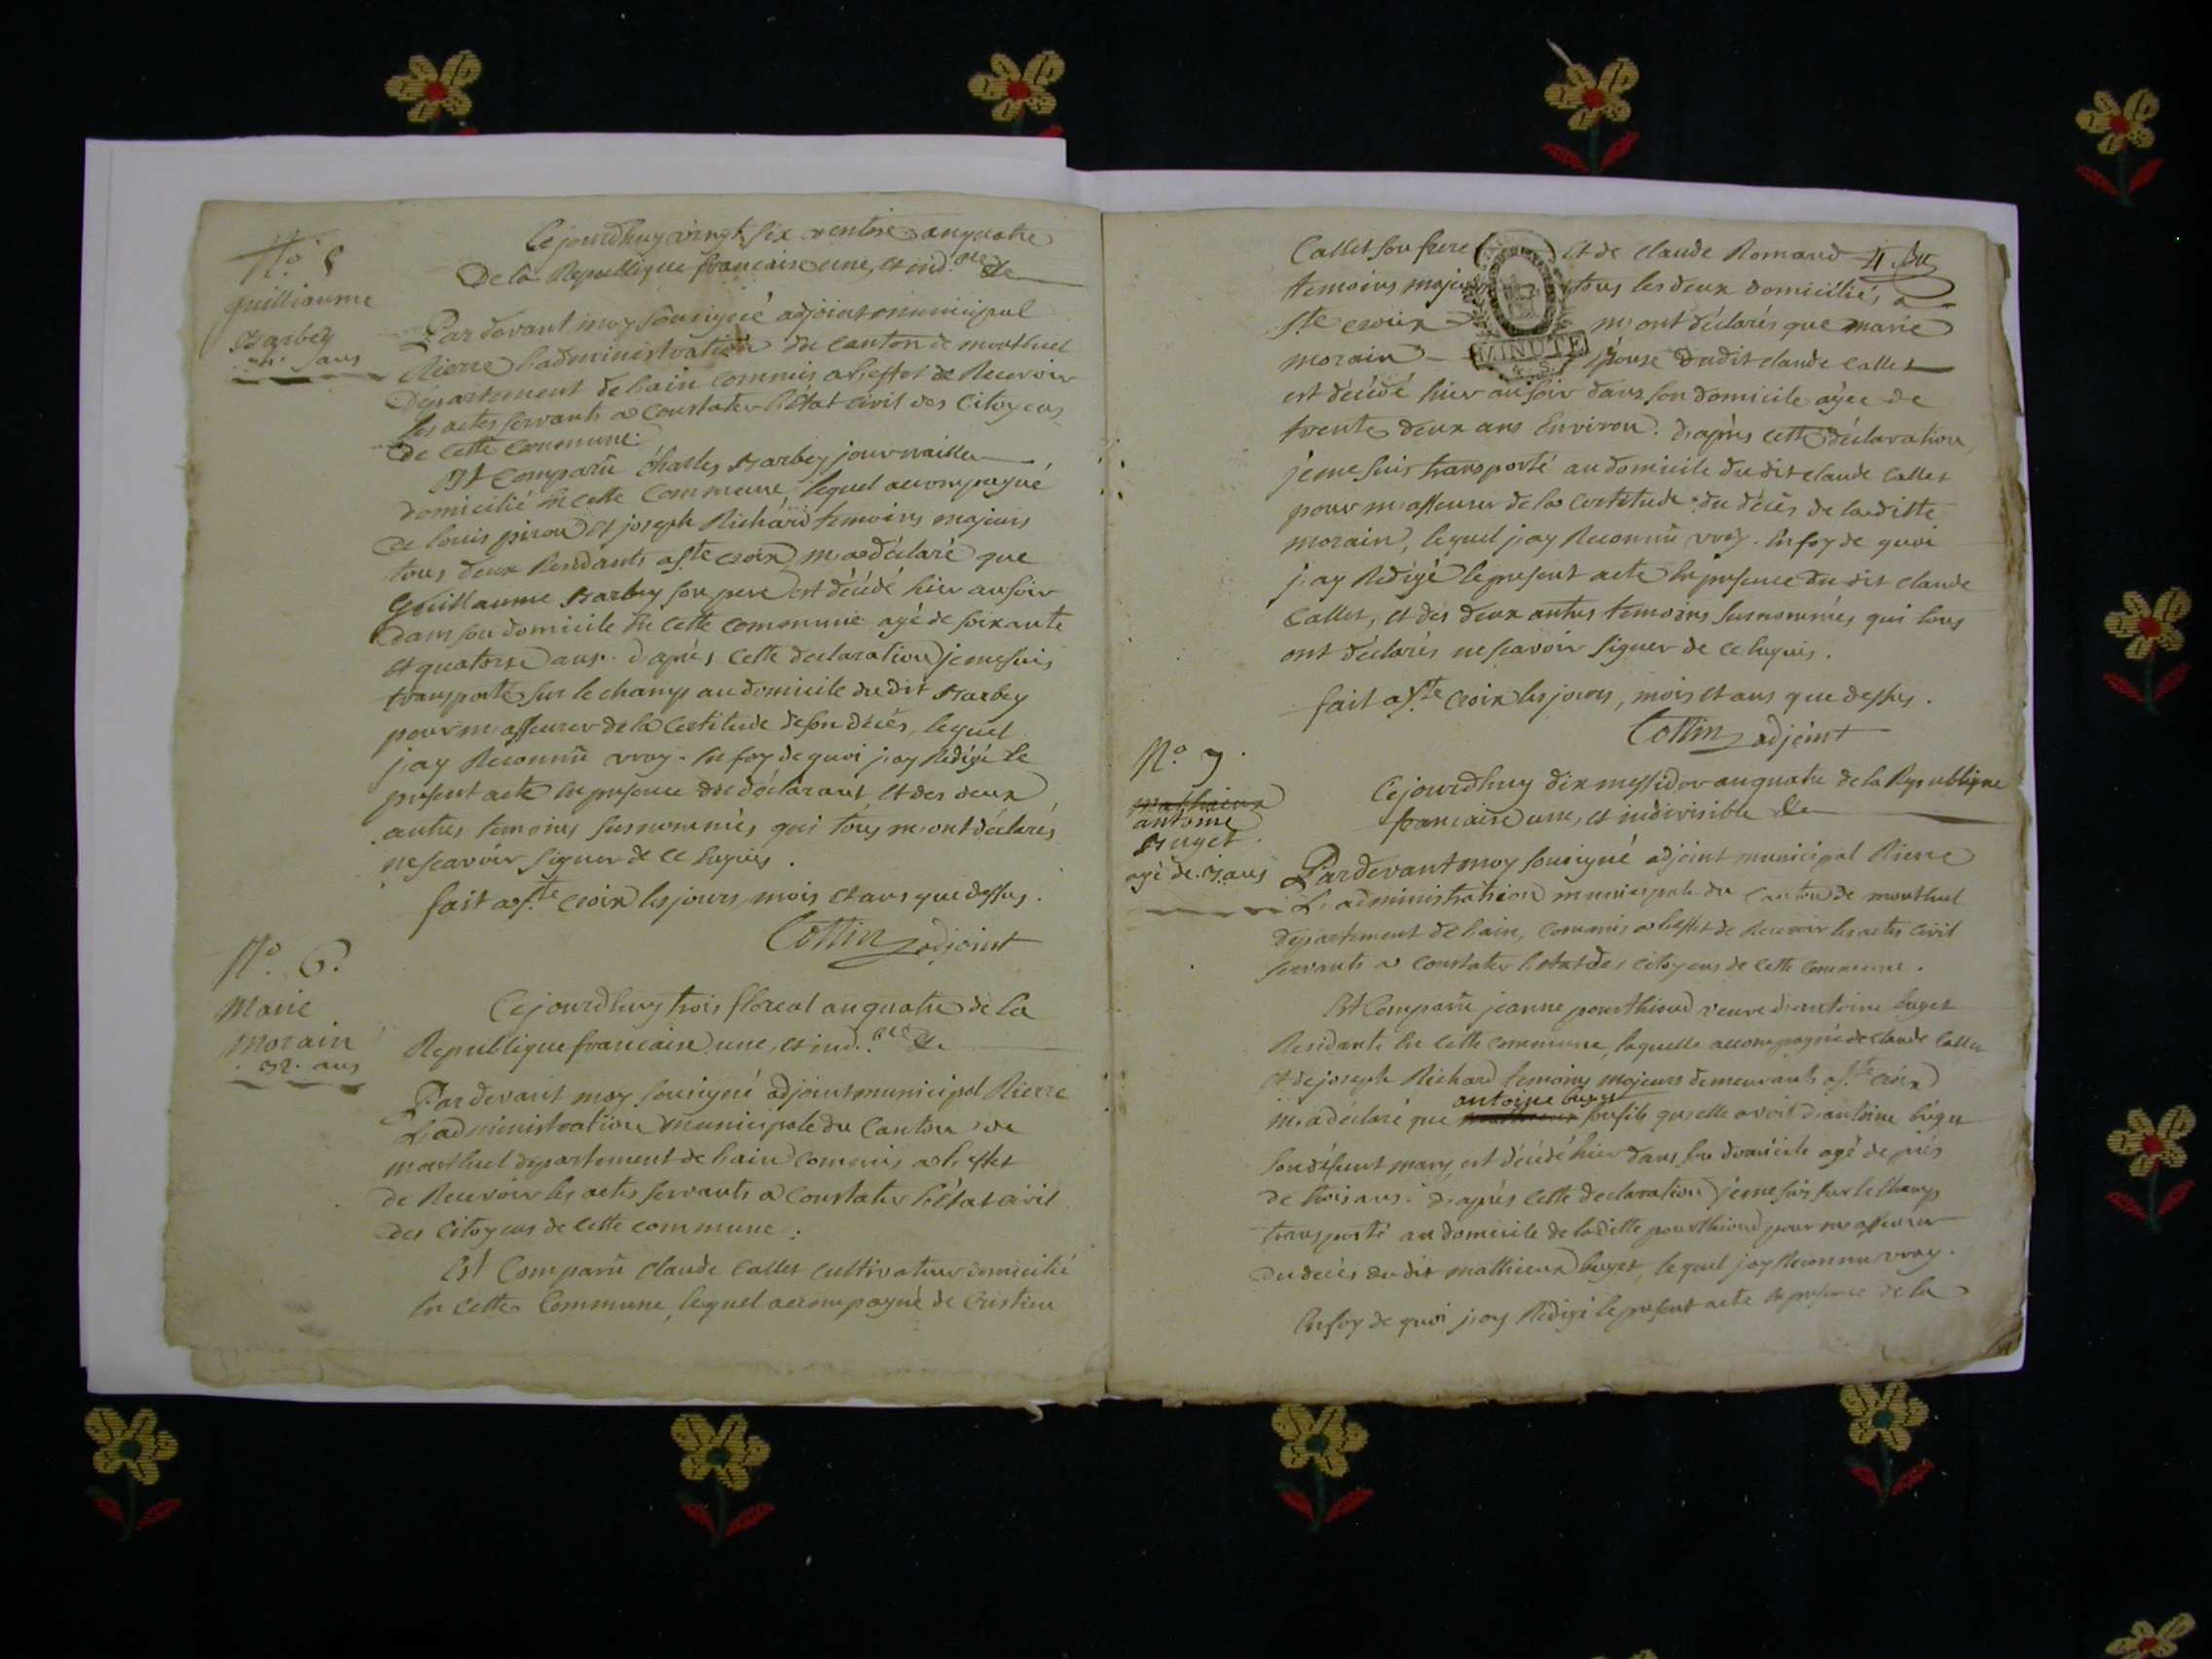 N.° 5
guilliaume
Barbey
ans
Cejourdhuy vingt six ventose an quatre
De la Republique francaise une, et ind.ble &c
Par devant moy sousigné adjoint municipal
Rierre l'administration du canton de montluel
Département de l'ain commis a l'effet de Recevoir
les actes servants a constater l'état civil des Citoyens
de cette commune.
Est comparû Charles Barbey journaillier
domicilié en cette Commune, lequel accompagné
de louis et joseph Richard temoins majeurs
tous deux Residants a ste croix m'a déclaré que
Guillaume Barbey son pere est décédé hier au soir
dans son domicile en cette commune agé de soixante
et quatorze ans. d'après cette declaration je me suis
transporté sur le champ au domicile du dit Barbey
pour m'asseurer de la Certitude de son décès, lequel
j'ay Reconnû vray. En foy de quoi j'ay Rédigé le
present acte en presence du déclarant, et des deux
autres temoins susnommés qui tous m'ont déclarés
ne scavoir signer de ce enquis.
fait a ste croix les jours, mois et ans que dessus.
Cottin adjoint
N.° 6.
Marie
Morain
32. ans
Cejourdhuy trois floreal an quatre de la
Republique francaise une, et ind.ble &c
Par devant moy sousigné adjoint municipal Rierre
L'administration Municipale du Canton de
montluel departement de l'ain commis a l'effet
de Recevoir les actes servants a Constater l'état civil
des Citoyens de cette commune.
Est Comparû Claude Callet cultivateur domicilié
en cette Commune, lequel accompagné de Cristin
Callet son frere et de Claude Romand
temoins majeurs tous les deux domiciliés a
Ste croix m'ont déclarés que marie
morain épouse dudit claude callet
est décédé hier au soir dans son domicile agée de
trente deux ans Environ. d'après cette déclaration,
je me suis transporté au domicile du dit claude Callet
pour m'asseurer de la certitude du décès de la ditte
morain, lequel j'ay Reconnû vray. En foy de quoi
j'ay Redigé le present acte En presence du dit claude
Callet, et des deux autres temoins susnommés, qui tous
ont déclarés ne scavoir signer de ce enquis.
fait a Ste Croix les jours, mois et ans que dessus.
Cottin adjoint
N.° 7.
mathieux
antoine
Buget
agé de 3. ans
Cejourdhuy dix messidor an quatre de la Republique
francaise une, et indivisible &c
Par devant moy sousigné adjoint municipal Rierre
L'administration municipale du canton de montluel
departement de l'ain, commis a l'effet de Recevoir les actes civil
servants a constater l'etat des citoyens de cette commune.
Est Comparû jeanne pourthioud veuve d'antoine buget
Residante en cette commune, laquelle accompagné de claude Callet
et de joseph Richard temoins majeurs demeurants a Ste Croix
antoine buget
m'a déclaré que son fils qu'elle avoit d'antoine buget
son défunt mary, est décédé hier dans son domicile agé de près
de trois ans. d'après cette declaration je me suis sur le champ
transporté au domicile de laditte pourthioud pour m'asseurer
du décès du dit mathieux buget, lequel j'ay Reconnu vray.
En foy de quoi j'ay Rédigé le present acte en presence de la
MINUTE